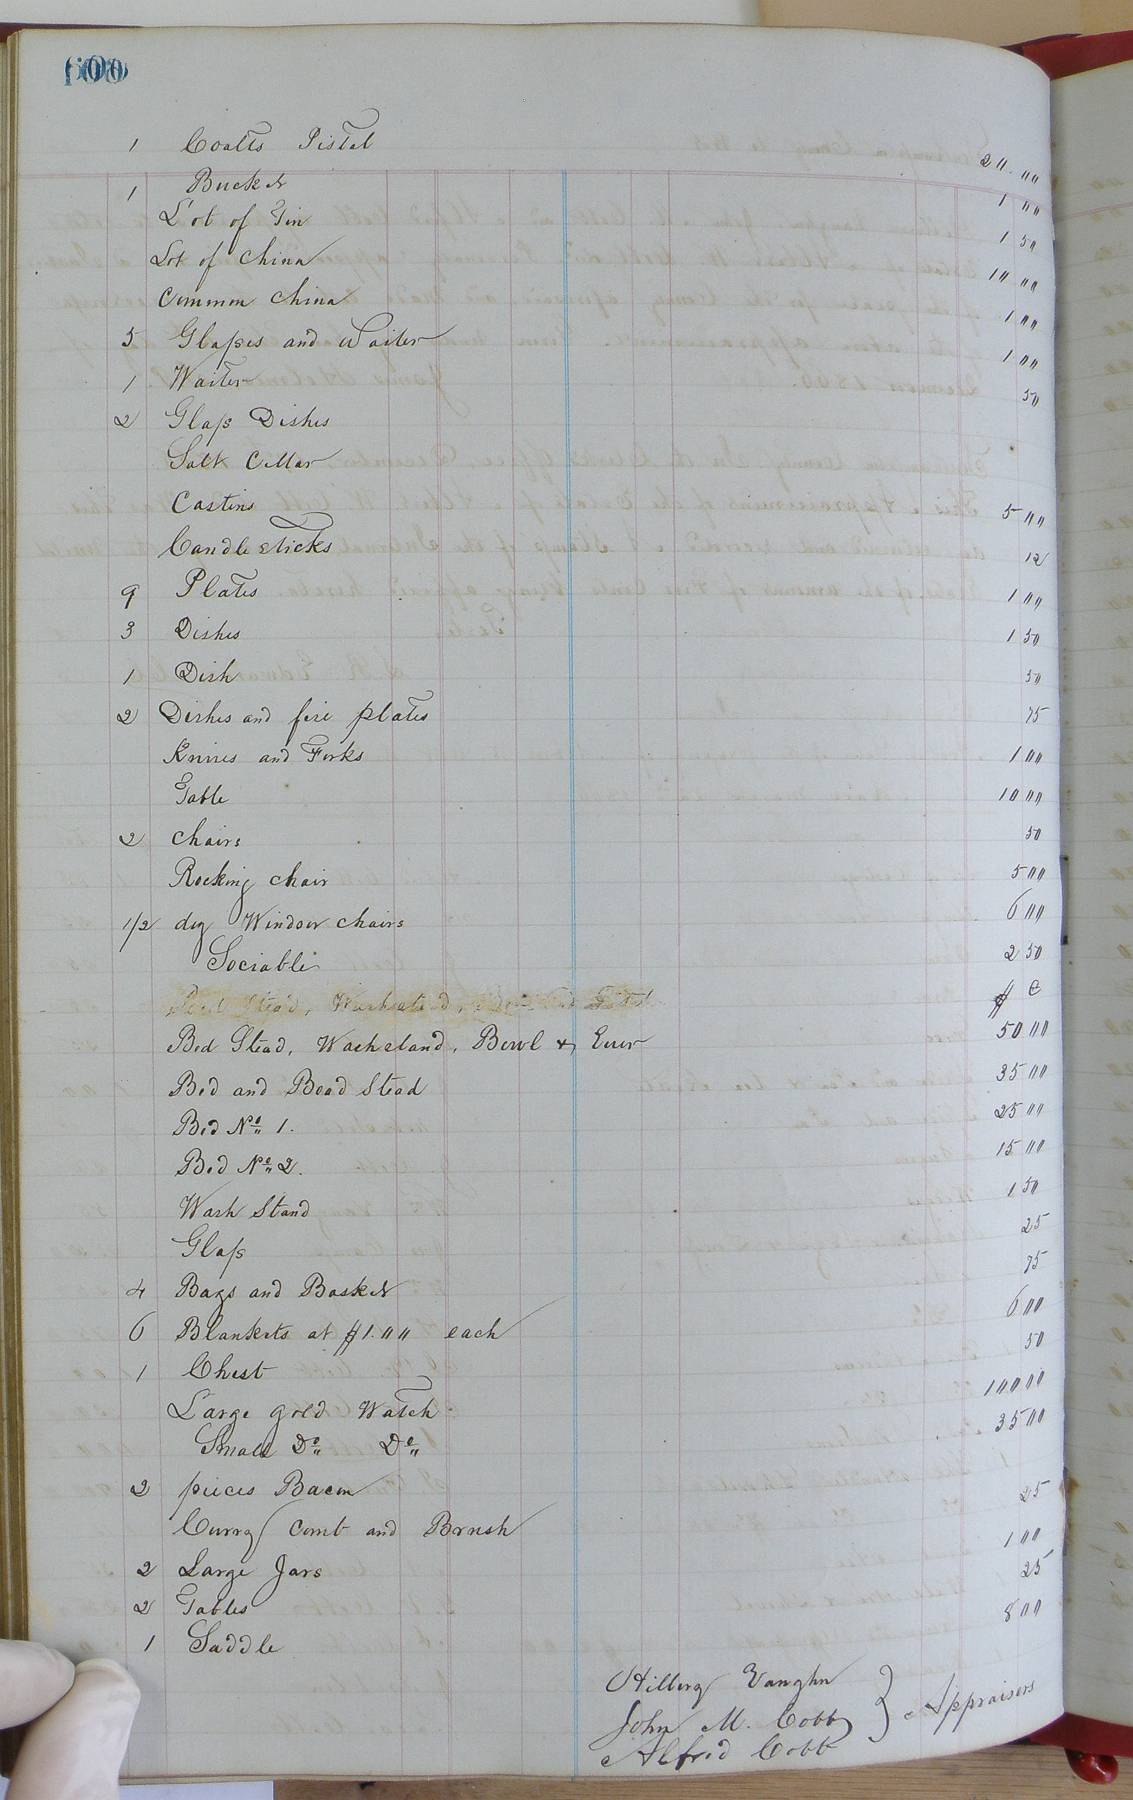 600
1 Coalts Pistol 20.00
1 Bucket 1 00
Lot of Tin 1 50
Lot of China 10 00
Common China 1 00
5 Glasses and Waiter 1 00
1 Waiter 50
2 Glass Dishes
Salt Cellar
Castins 5 00
Candle sticks 12
9 Plates 1 00
3 Dishes 1 50
1 Dish 50
2 Dishes and five plates 75
Knives and Forks 1 00
Table 10 00
2 Chairs 50
Rocking chair 5 00
1/2 doz Window chairs 6 00
Sociable 2 50
$ C
Bed Stead, Washstand, Bowl & Ewer 50 00
Bed and Bead Stead 35 00
Bed No 1. 25 00
Bed No 2. 15 00
Wash Stand 1 50
Glass 25
4 Bags and Basket 75
6 Blankets at $1.00 each 6 00
1 Chest 50
Large gold Watch 100 00
Small Do Do 35 00
2 pieces Bacon
Curry Comb and Brush 25
2 Large Jars 1 00
2 Tables 25
1 Saddle 8 00
Hillery Vaughn
John M. Cobb } Appraisers
Alfred Cobb